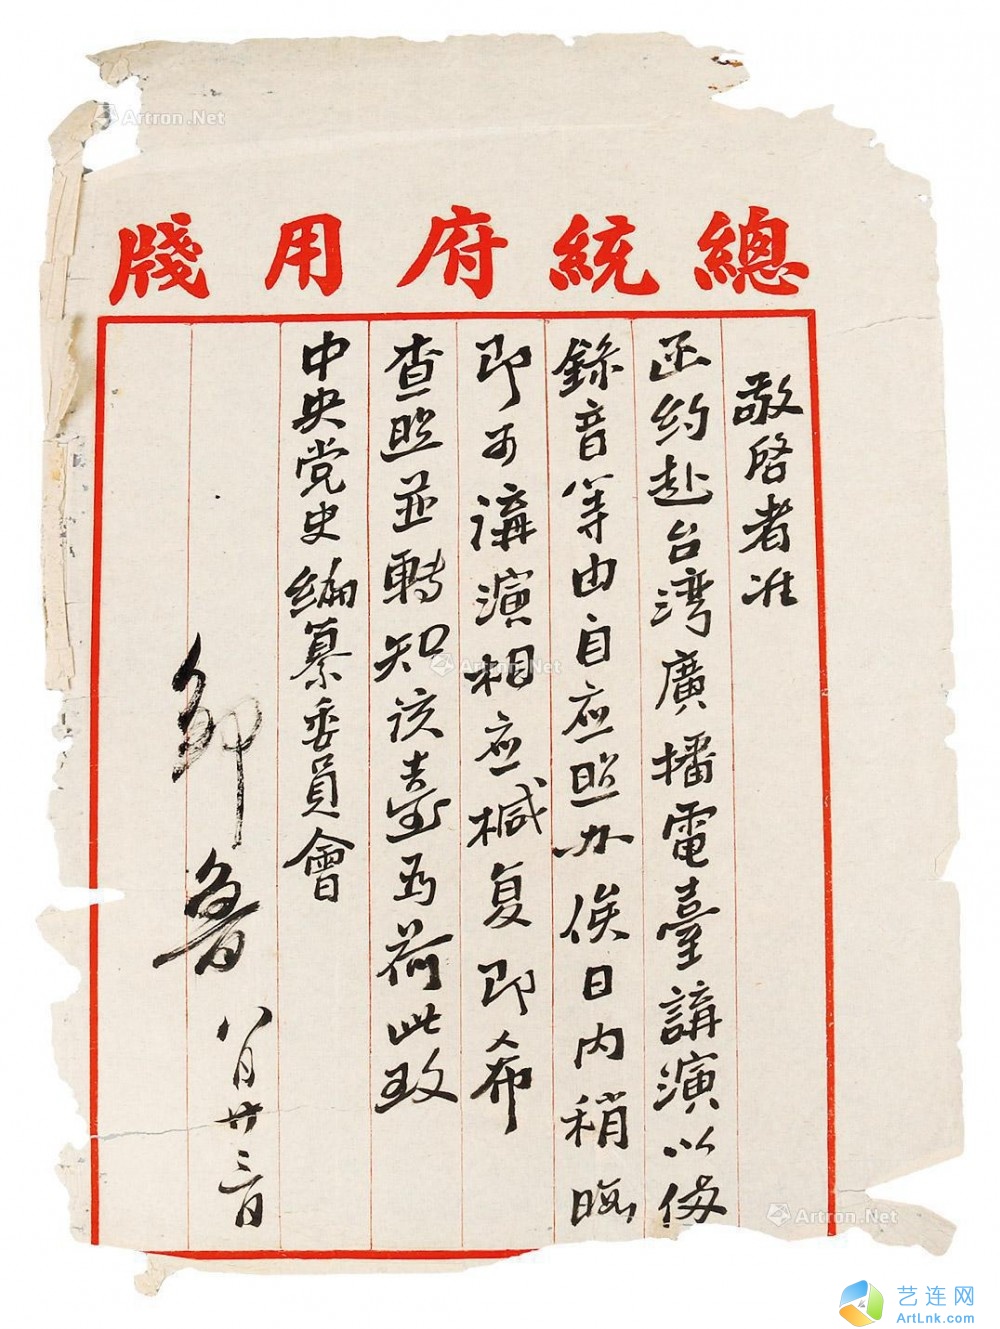 總統府用牋
敬啓者准
函约赴台湾廣播電臺講演以俻
錄音等由自应照办俟日内稍暇
即可講演相应椷复即希
查照並轉知该臺为荷此致
中央党史编纂委員會
邹鲁
八月廿三日
Artron.Net
Artron.Net
Artron.Net
艺连网
ArtLnk.com